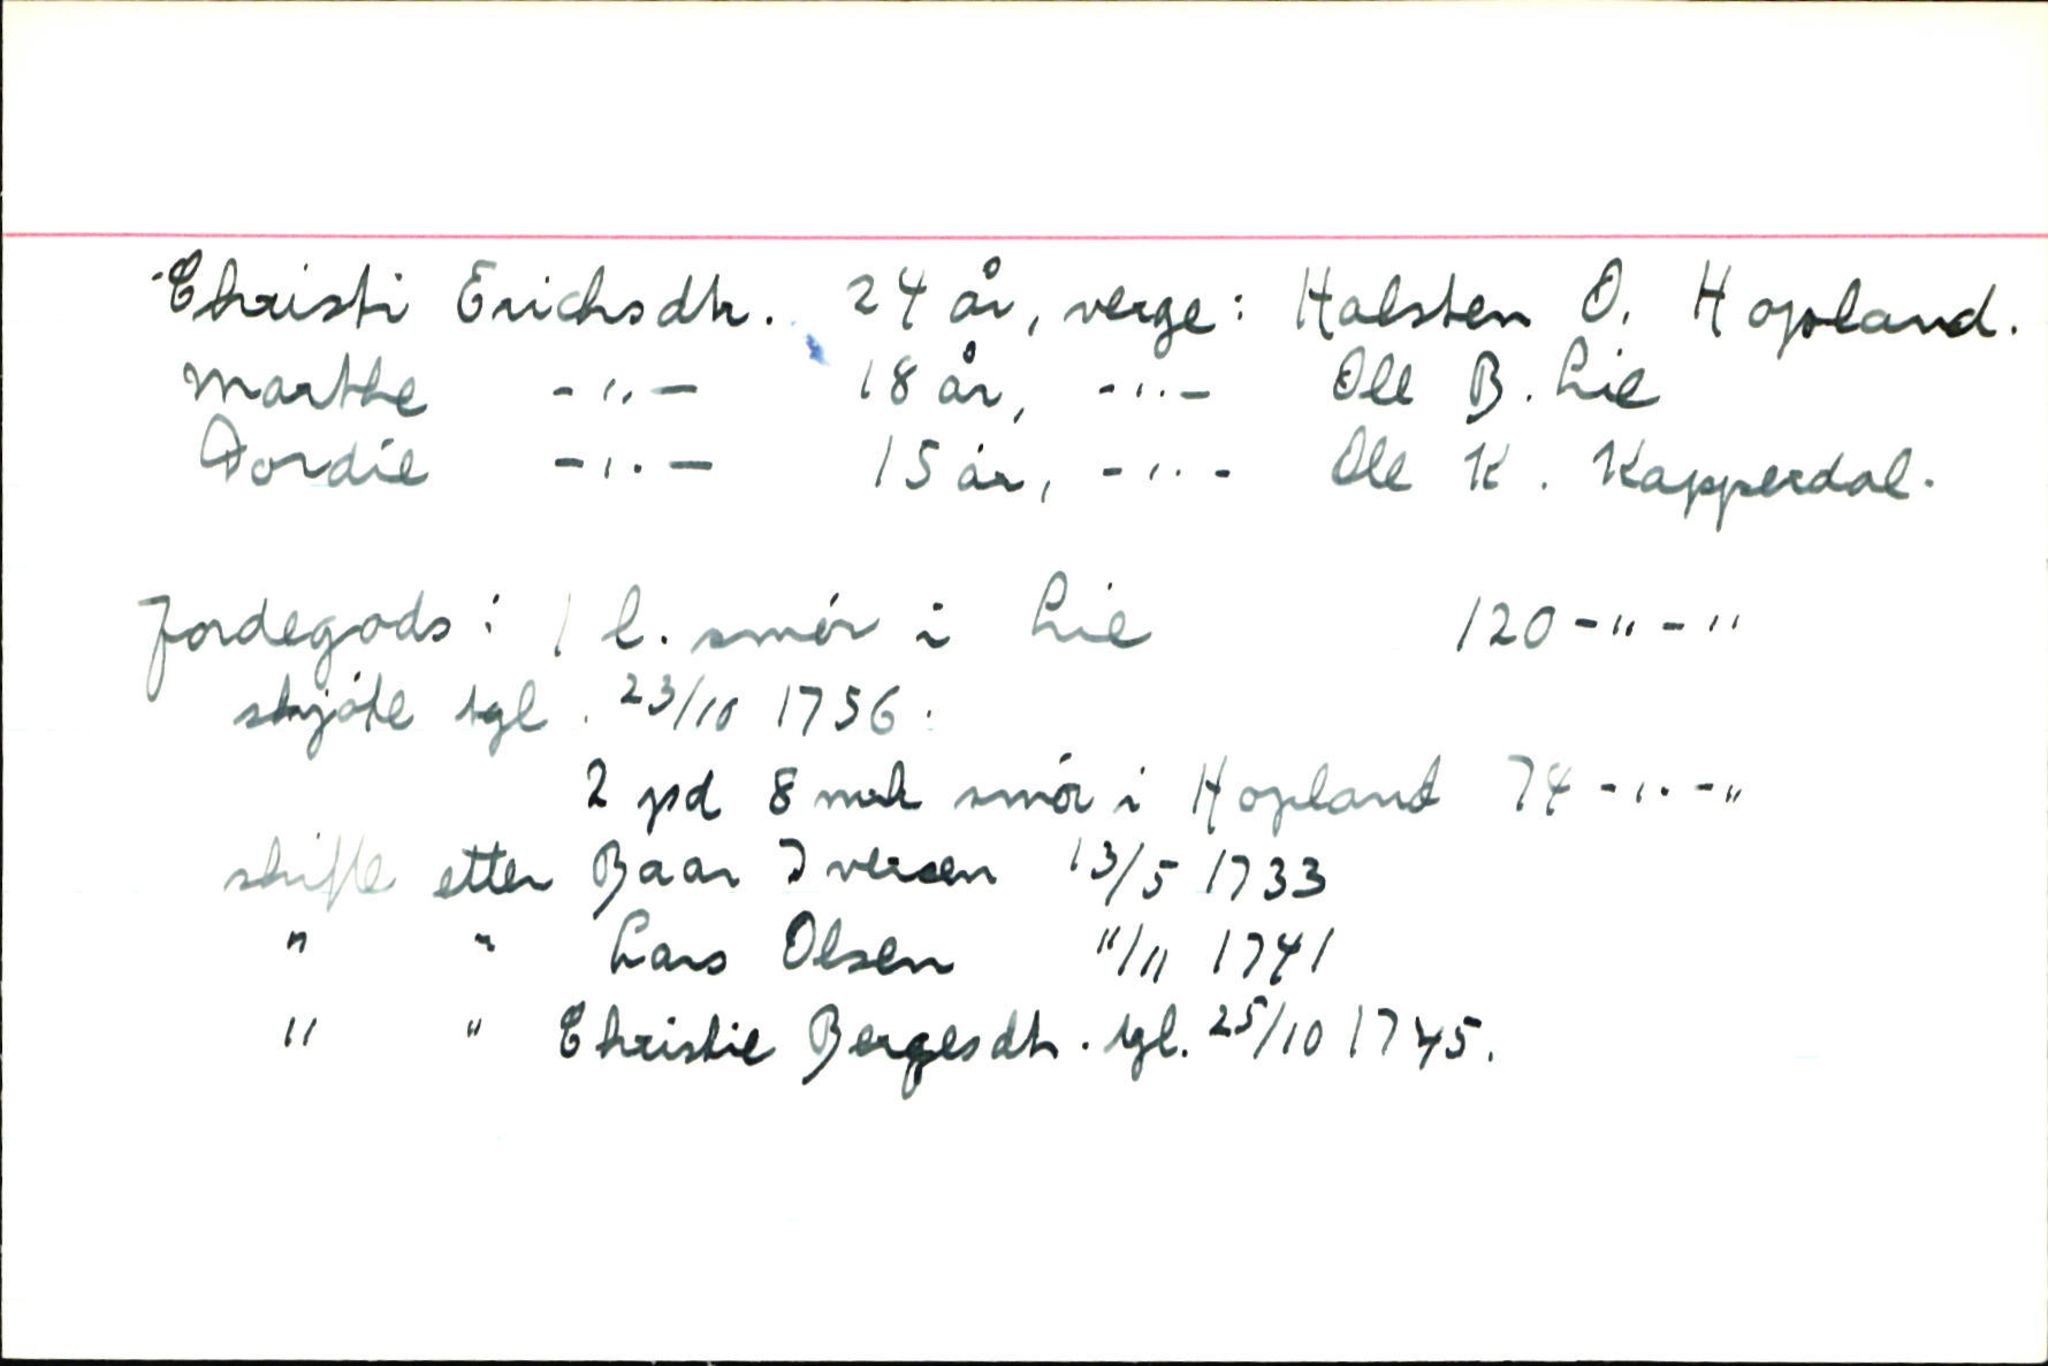 Christi Erichsdtr. 24 år, verge: Halsten O. Hopland.
Marthe -"- 18 år, -"- Ole B. Lie
Dordie -"- 15 år, -"- Ole K. Kapperdal.
Jordegods: 1 l. smör i Lie 120-"-"
skjöte tgl. 23/10 1756.
2 pd 8 mk smör i Hopland 74-"-"
skifte etter Baar Iversen 13/5 1733
" " Lars Olsen "/11 1741
" " Christie Bergesdtr. tgl. 25/10 1745.